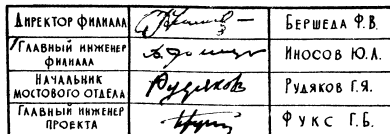 Директор филиала Бершеда Ф.В.
Главный инженер филиала Иносов Ю.Л.
Начальник мостового отдела Рудяков Рудяков Г.Я.
Главный инженер проекта Фукс Г.Б.